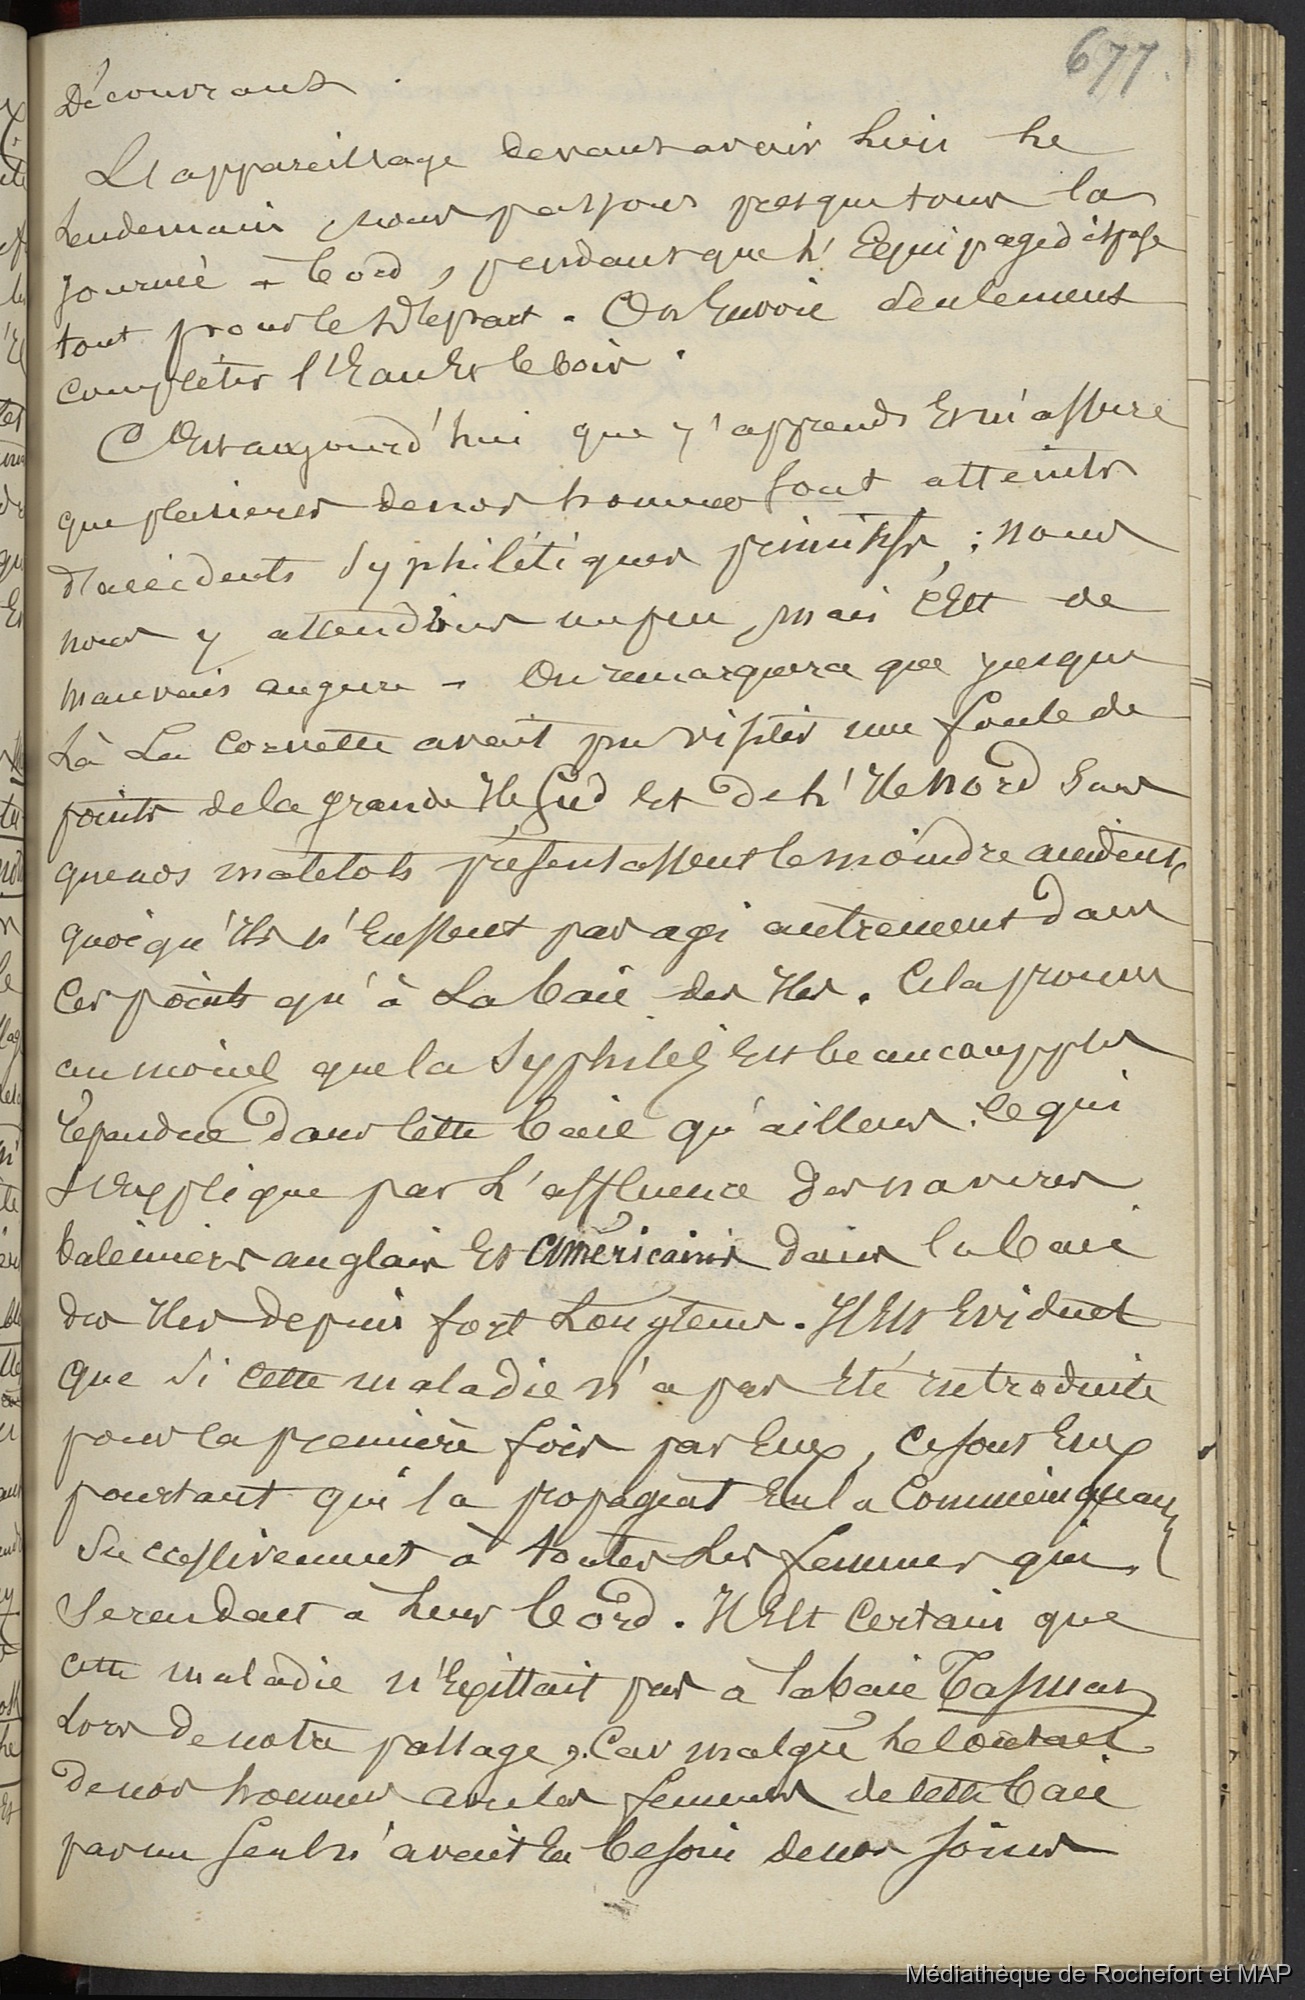 677.
Découvrant.
L'appareillage devant avoir lieu le
lendemain, nous passons presque toute la
journée à bord, pendant que l'Equipage dispose
tout pour le Départ. On Envoie seulement
compléter l'Eau Et le bois.
C'Est aujourd'hui que j'apprends Et m'assure
que plusieurs de nos hommes sont atteints
d'accidents Syphilitiques primitifs; nous
nous y attendions un peu, mais c'Est de
mauvais augure. On remarquera que jusque
là La Corvette avait pu visiter une foule de
points de la grande Ile Sud Et de l'Ile Nord Sans
que nos matelots présentassent le moindre accident,
quoiqu'ils n'Eussent pas agi autrement dans
Ces points qu'à La baie des Iles. Cela prouve
au moins que la Syphilis Est beaucoup plus
répandue dans cette baie qu'ailleurs. Ce qui
s'Explique par L'affluence des navires
baleiniers anglais Et américains dans la baie
des Iles depuis fort Longtems. Il Est Evident
que Si cette maladie n'a pas Eté introduite
pour la première fois par Eux, ce sont Eux
pourtant qui la propagent En la Communiquant
Successivement à toutes les femmes qui
Se rendent à leur bord. Il Est Certain que
cette maladie n'Existait pas à la baie Tasman
Lors de notre passage, Car malgré le contact
de nos hommes avec les femmes de cette baie
pas un seul n'avait Eu besoin de nos soins
Médiathèque de Rochefort et MAP